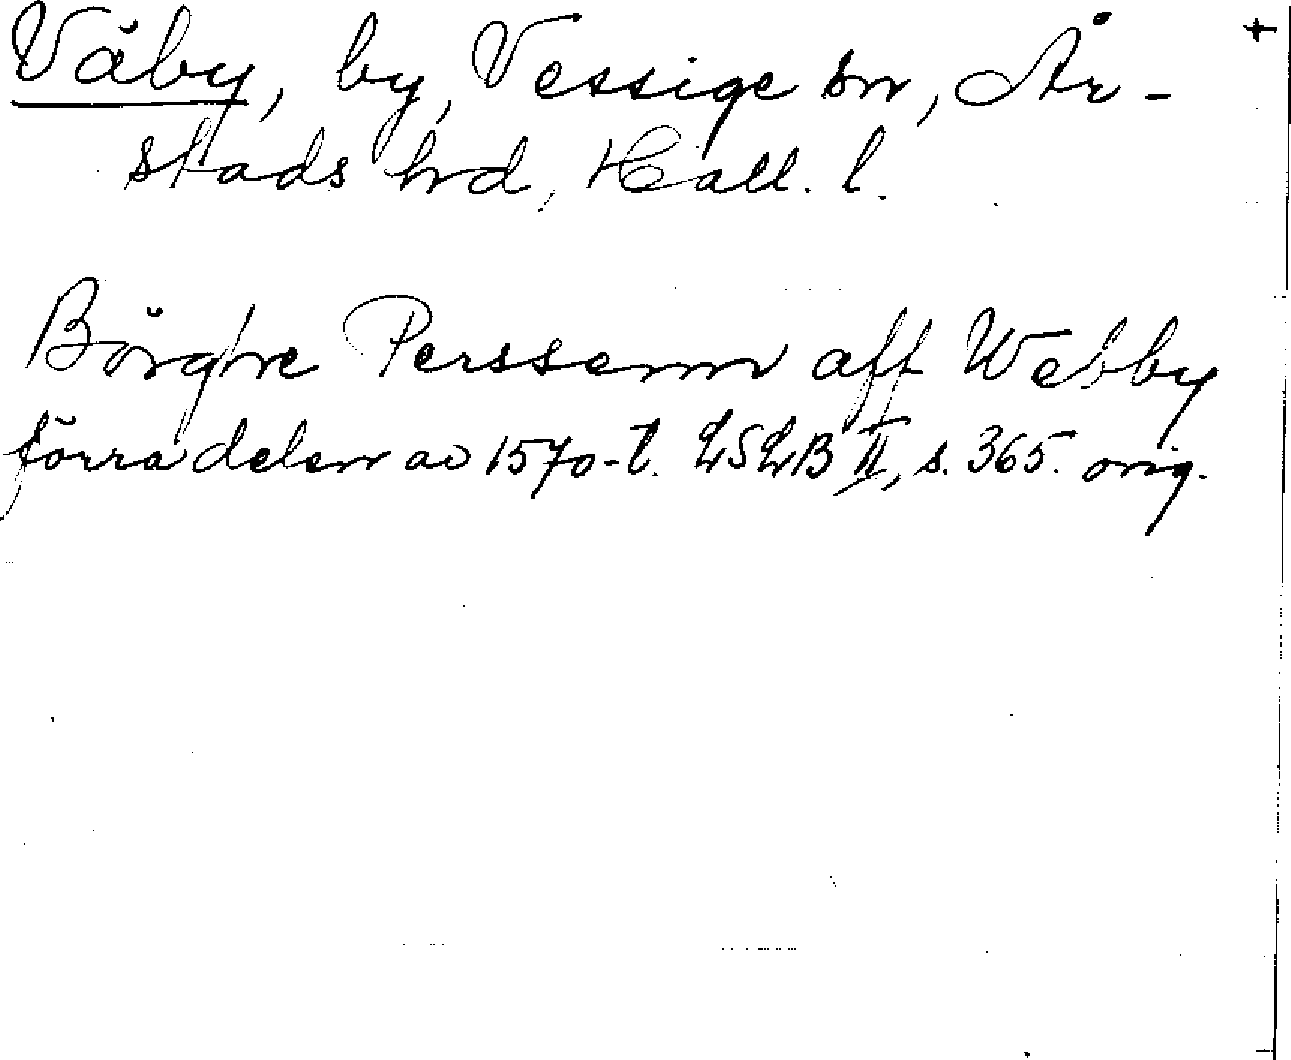 Väby, by, Vessige sn, År-
stads hrd, Hall. l.
+
Börghe Perssenn aff Webby
förra delen av 1570-t. LSLB II, s. 365. orig.